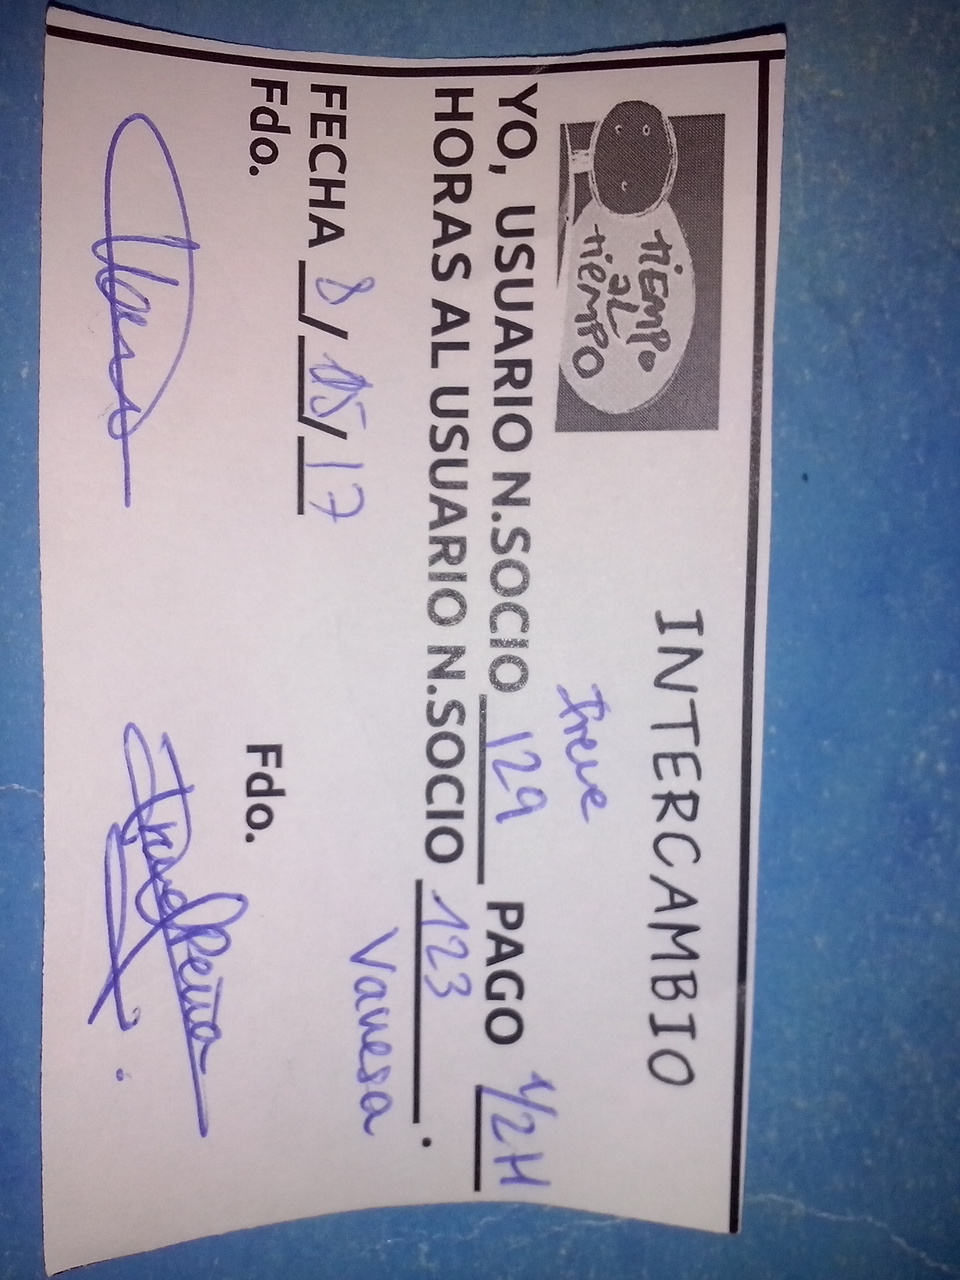 TIEMPO
AL
TIEMPO
INTERCAMBIO
Irene
YO, USUARIO N.SOCIO 129 PAGO 1/2H
HORAS AL USUARIO N.SOCIO 123.
Vanesa
FECHA 8/05/17
Fdo. Fdo.
Peña